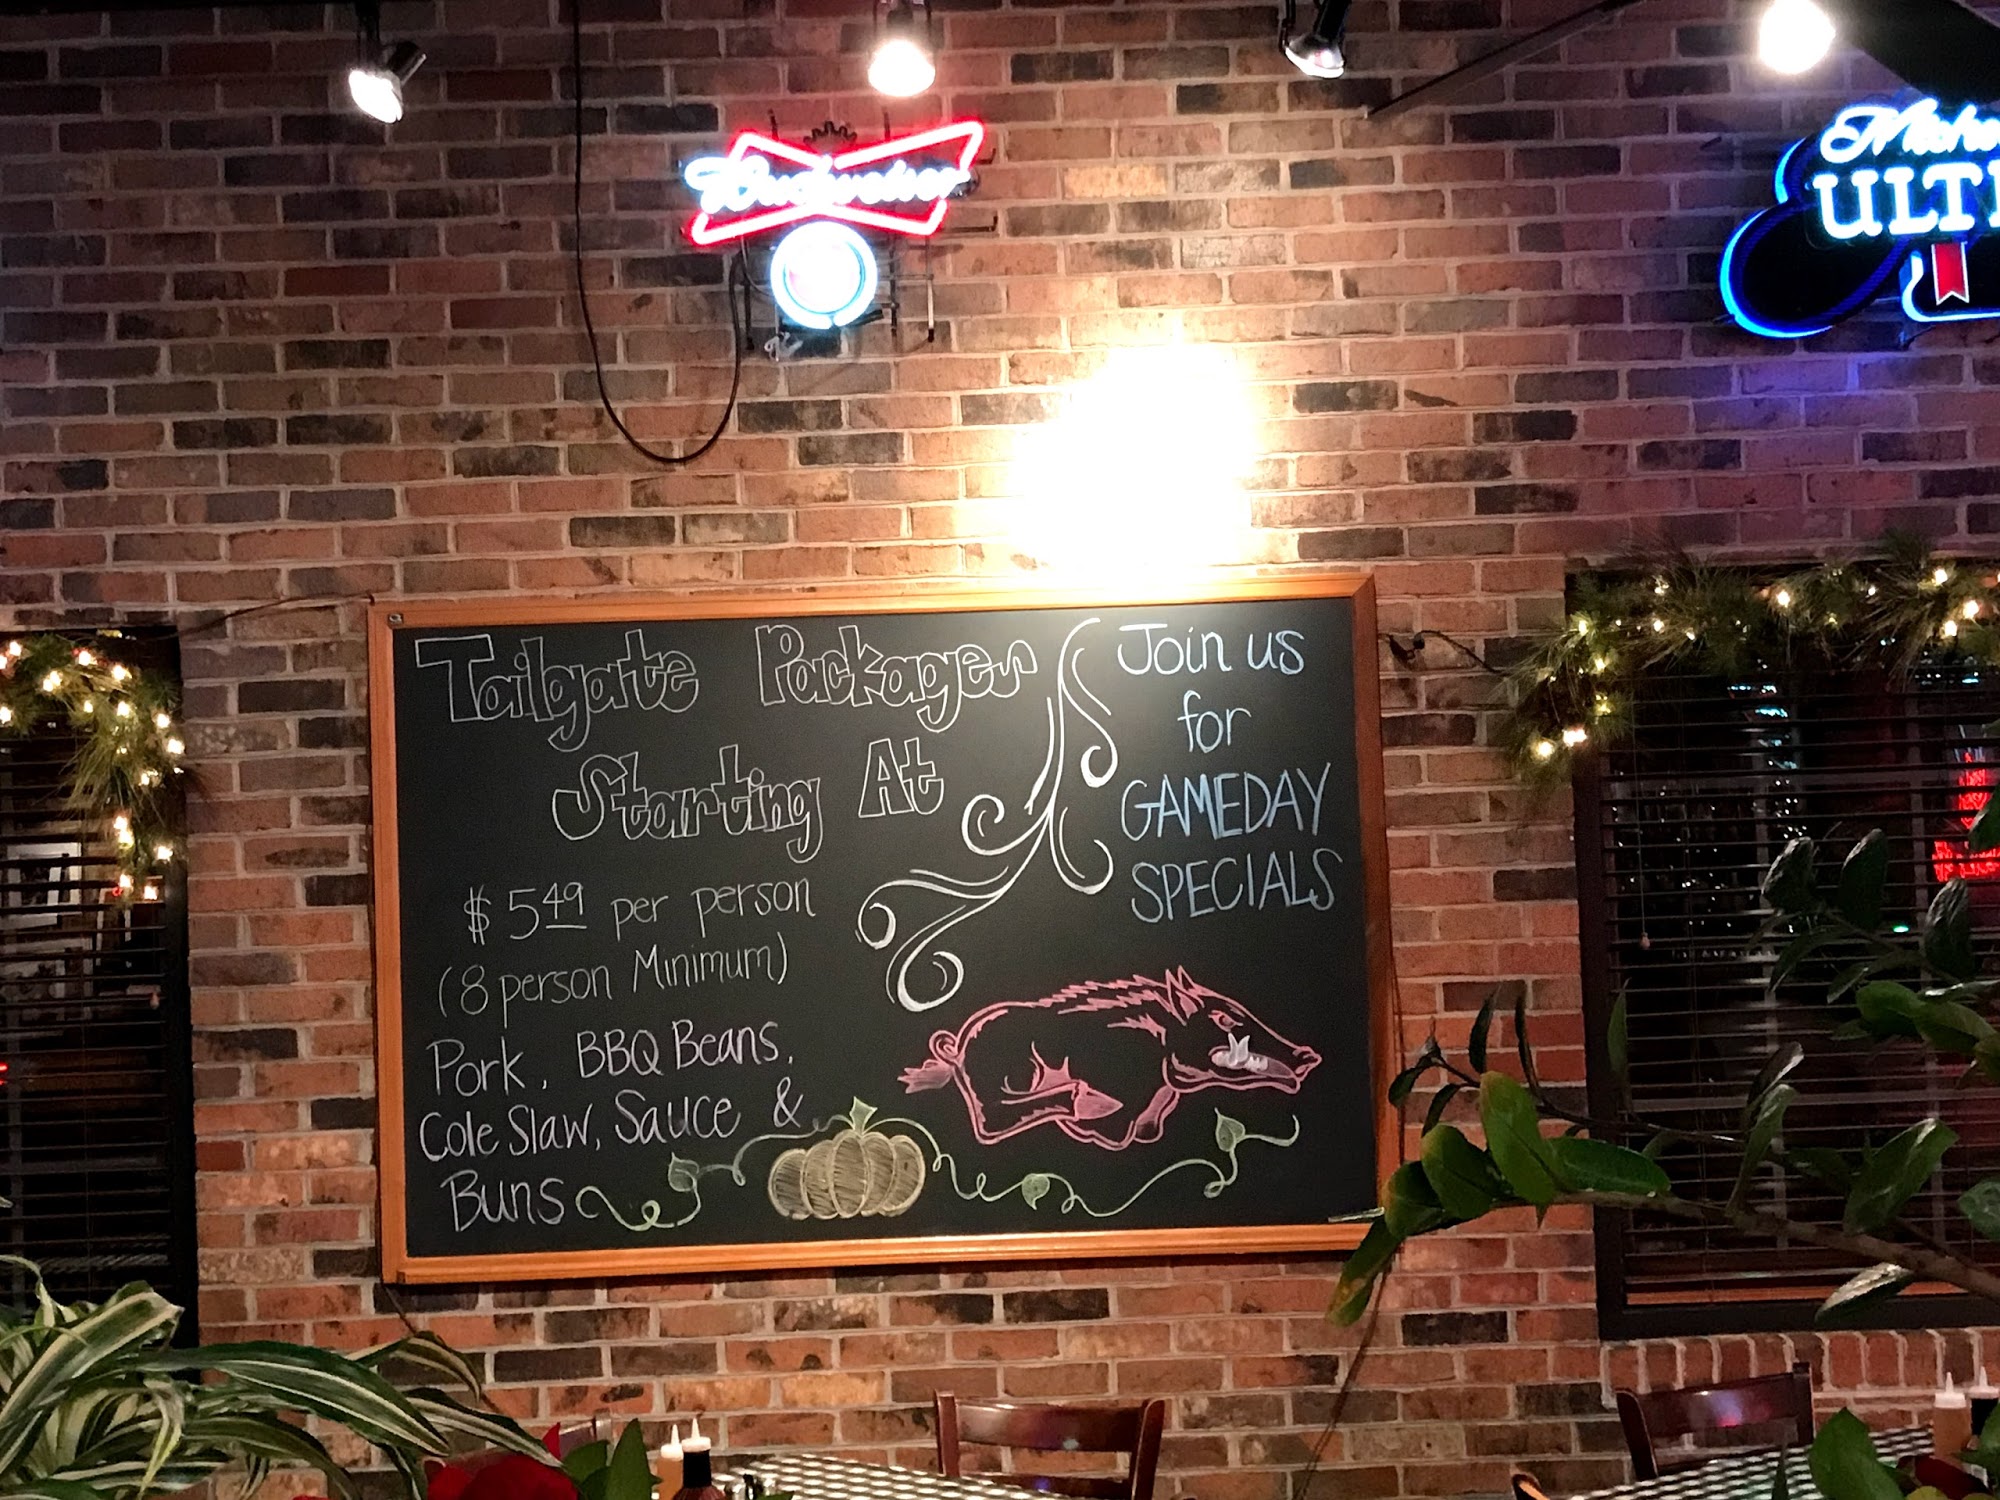 Budweiser
ULT
Tailgate Packages
Starting At
$5.49 per person
(8 person Minimum)
Pork, BBQ Beans,
Cole Slaw, Sauce &
Buns
Join us
for
GAMEDAY
SPECIALS